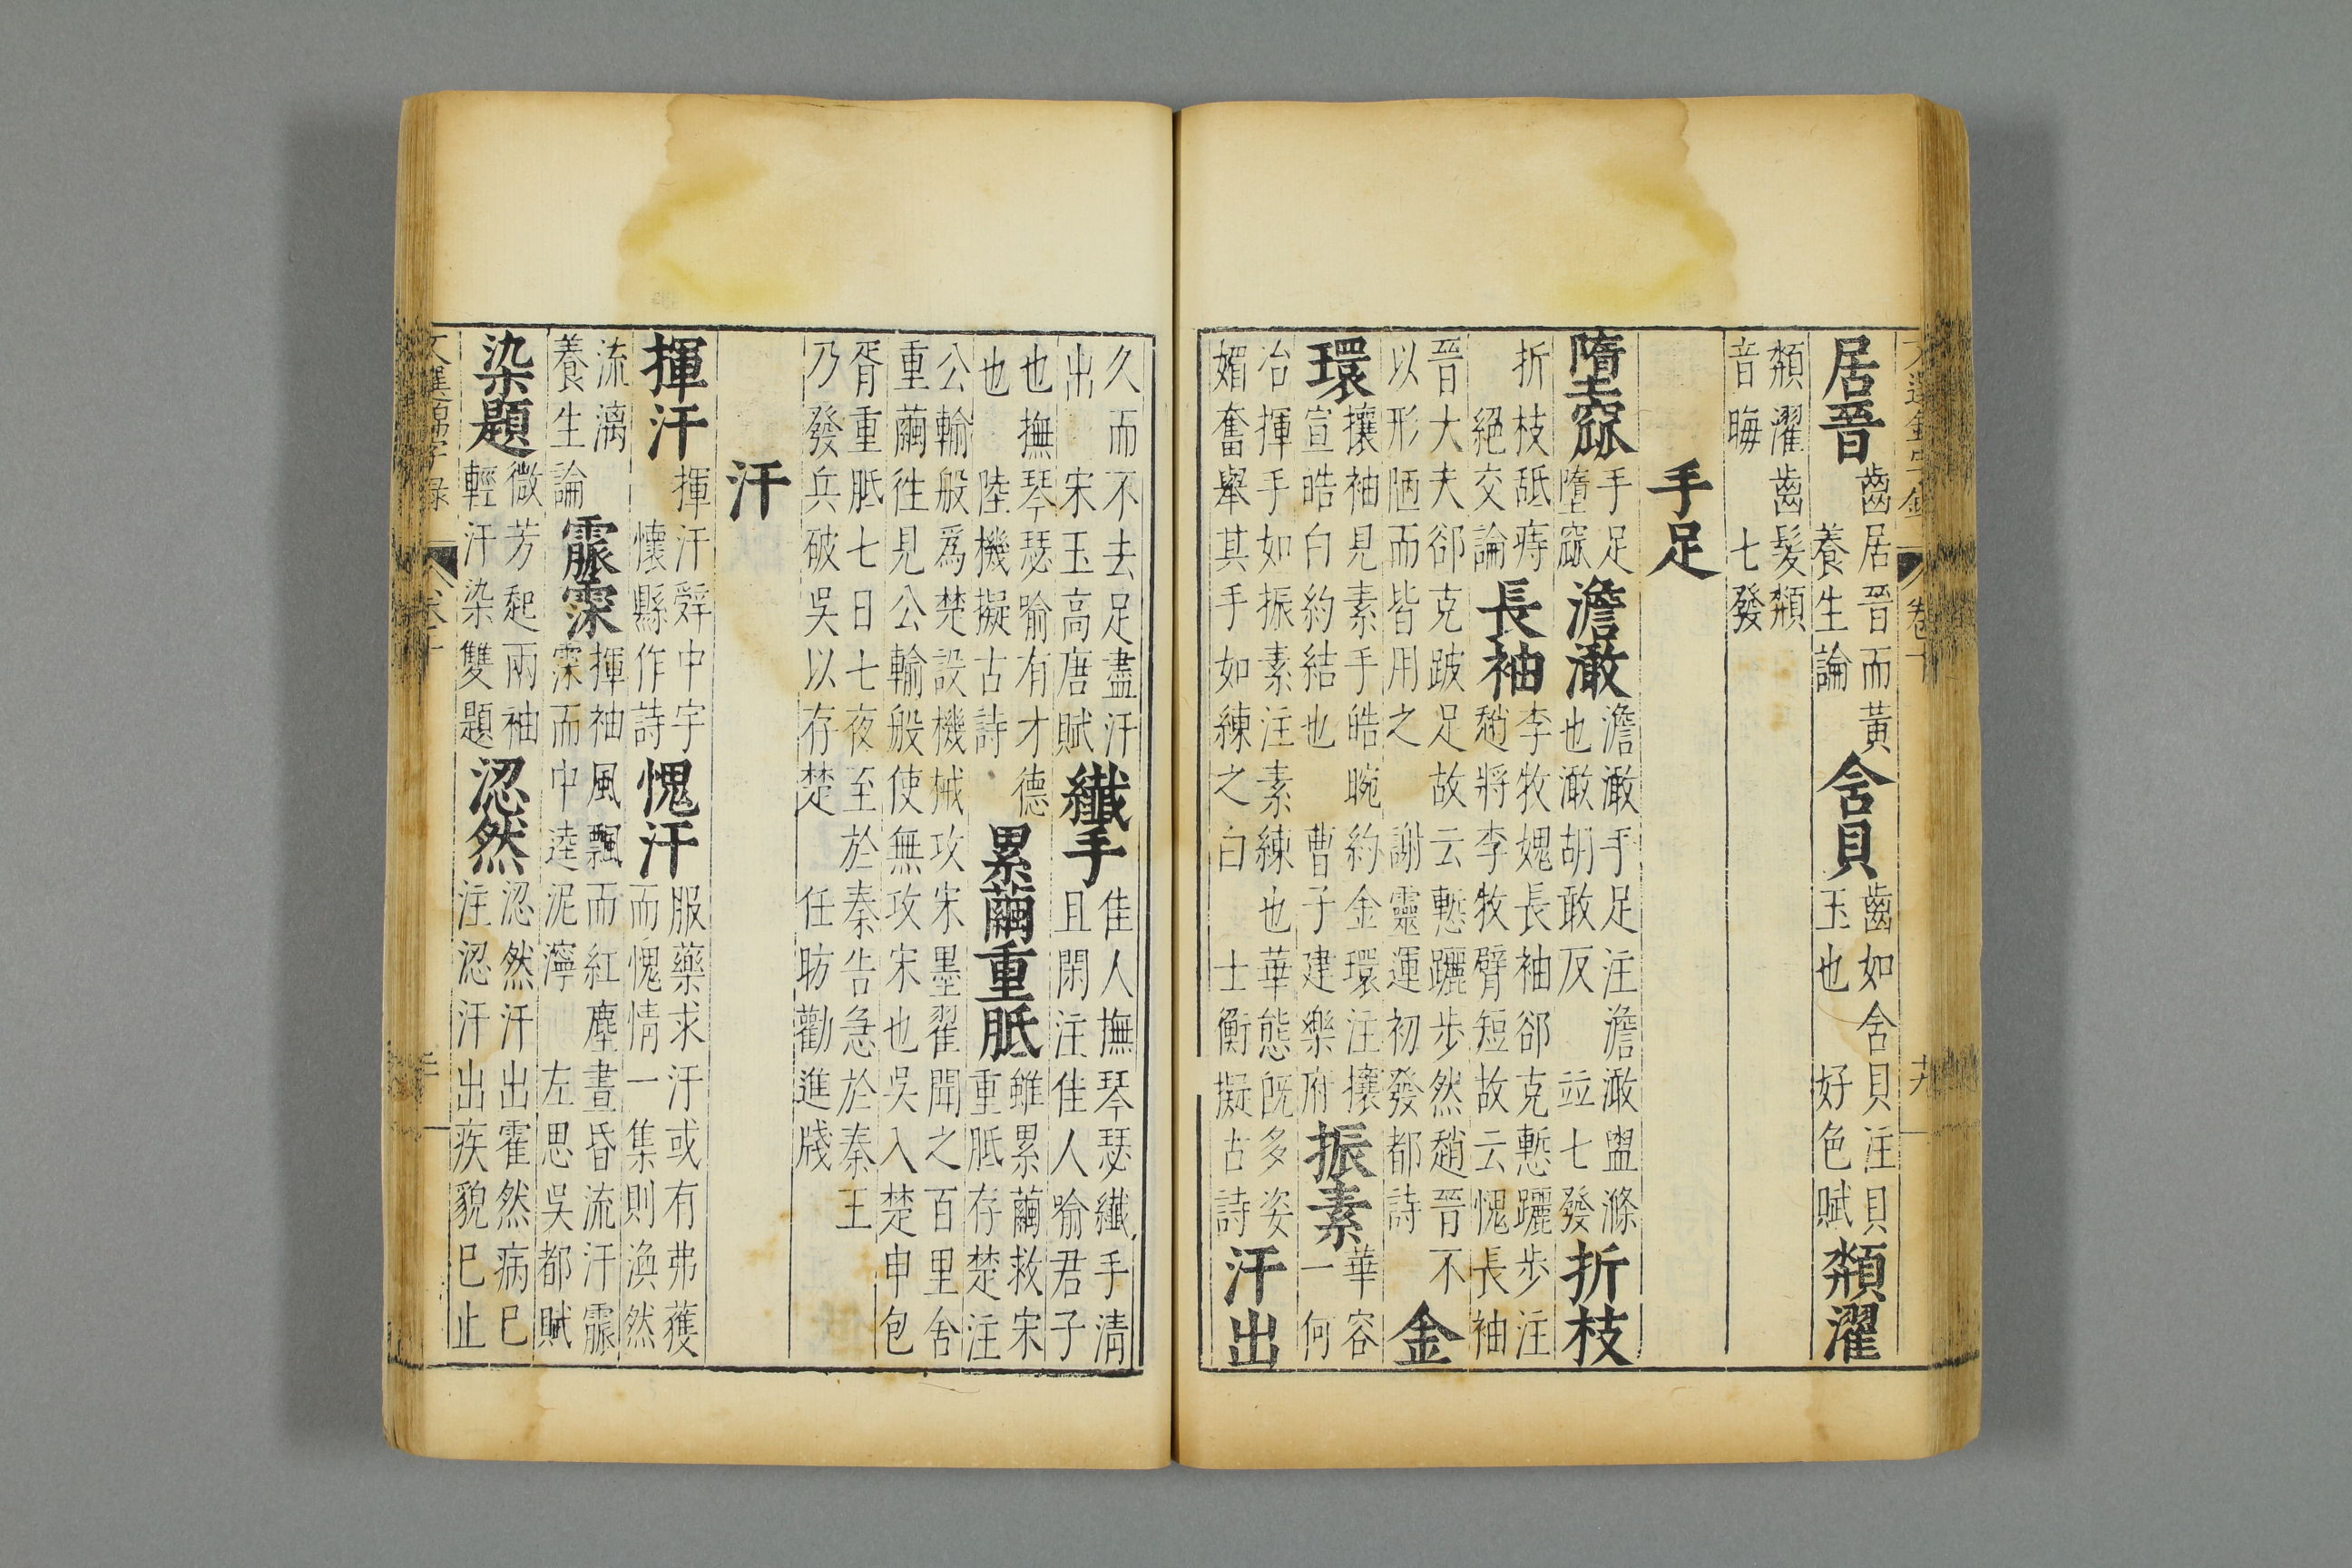 居晉齒居晉而黃養生論含貝齒如含貝注貝玉也好色賦頮濯
頮濯齒髮頮音晦七發
手足
墮窳手足墮窳澹澉澹澉手足注澹澉盥滌也澉胡敢反並七發折枝
折枝舐痔絕交論長袖李牧媿長袖郤克慙躧步注趙將李牧臂短故云愧長袖
晉大夫郤克跛足故云慙躧步然趙晉不以形陋而皆用之謝靈運初發都詩金
環攘袖見素手皓腕約金環注攘宣皓白約結也曹子建樂府振素華容一何
冶揮手如振素注素練也華態既多姿媚奮舉其手如練之白士衡擬古詩汗出
久而不去足盡汗出宋玉高唐賦纖手佳人撫琴瑟纖手清且閑注佳人喻君子
也撫琴瑟喻有才德也陸機擬古詩累繭重胝雖累繭救宋重胝存楚注
公輸般爲楚設機械攻宋墨翟聞之百里舍重繭徃見公輸般使無攻宋也吳入楚申包
胥重胝七日七夜至於秦告急於秦王乃發兵破吳以存楚任昉勸進牋
汗
揮汗揮汗辤中宇懷縣作詩愧汗服藥求汗或有弗獲而愧情一集則渙然
流漓養生論霢霂揮袖風飄而紅塵晝昏流汗霢霂而中逵泥濘左思吳都賦
染題微芳起兩袖輕汗染雙題涊然涊然汗出霍然病已注涊汗出疾貌已止